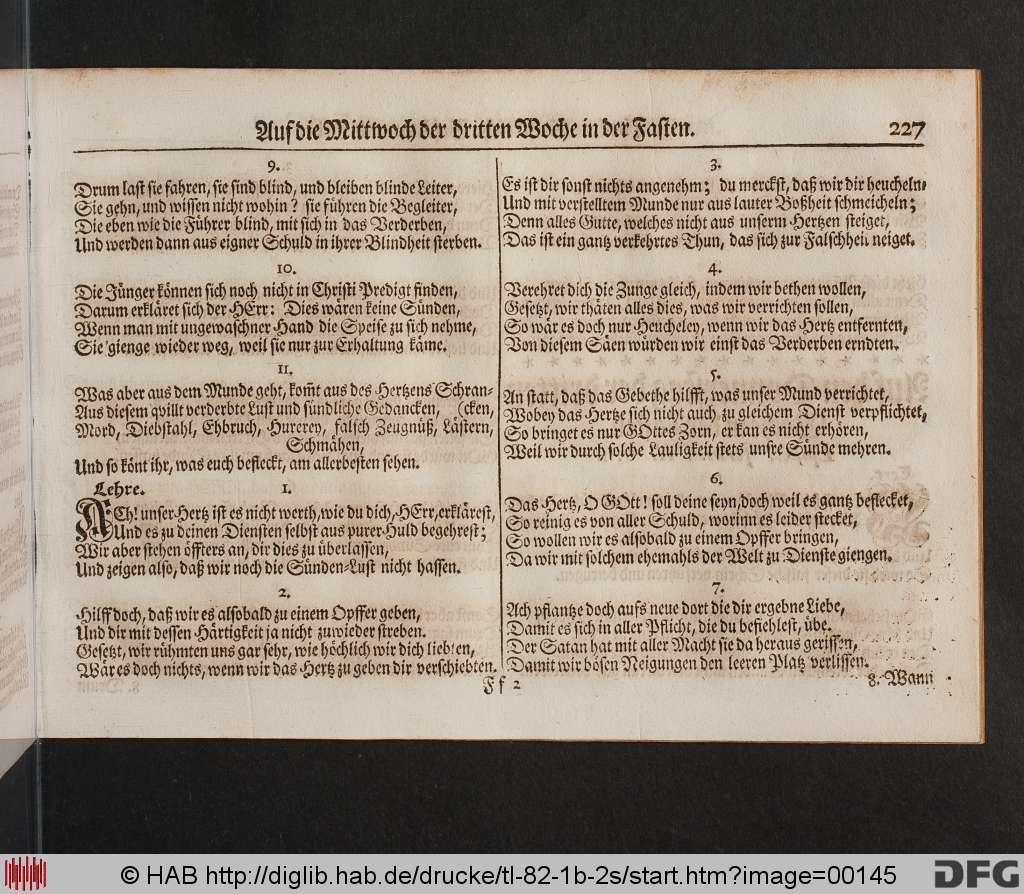 Auf die Mittwoch der dritten Woche in der Fasten. 227
9.
Drum last sie fahren, sie sind blind, und bleiben blinde Leiter,
Sie gehn, und wissen nicht wohin? sie führen die Begleiter,
Die eben wie die Führer blind, mit sich in das Verderben,
Und werden dann aus eigner Schuld in ihrer Blindheit sterben.
10.
Die Jünger können sich noch nicht in Christi Predigt finden,
Darum erkläret sich der HErr: Dies wären keine Sünden,
Wenn man mit ungewaschner Hand die Speise zu sich nehme,
Sie gienge wieder weg, weil sie nur zur Erhaltung käme.
11.
Was aber aus dem Munde geht, kom̃t aus des Hertzens Schran-
Aus diesem qvillt verderbte Lust und sündliche Gedancken, (cken,
Mord, Diebstahl, Ehbruch, Hurerey, falsch Zeugnüß, Lästern,
Schmähen,
Und so könt ihr, was euch befleckt, am allerbesten sehen.
Lehre. 1.
ACh! unser Hertz ist es nicht werth, wie du dich, HErr, erklärest,
Und es zu deinen Diensten selbst aus purer Huld begehrest;
Wir aber stehen öffters an, dir dies zu überlassen,
Und zeigen also, daß wir noch die Sünden-Lust nicht hassen.
2.
Hilff doch, daß wir es alsobald zu einem Opffer geben,
Und dir mit dessen Härtigkeit ja nicht zuwieder streben.
Gesetzt, wir rühmten uns gar sehr, wie höchlich wir dich liebten,
Wär es doch nichts, wenn wir das Hertz zu geben dir verschiebten.
3.
Es ist dir sonst nichts angenehm; du merckst, daß wir dir heucheln,
Und mit verstelltem Munde nur aus lauter Boßheit schmeicheln;
Denn alles Gutte, welches nicht aus unserm Hertzen steiget,
Das ist ein gantz verkehrtes Thun, das sich zur Falschheit neiget.
4.
Verehret dich die Zunge gleich, indem wir bethen wollen,
Gesetzt, wir thäten alles dies, was wir verrichten sollen,
So wär es doch nur Heucheley, wenn wir das Hertz entfernten,
Von diesem Säen würden wir einst das Verderben erndten.
5.
An statt, daß das Gebethe hilfft, was unser Mund verrichtet,
Wobey das Hertze sich nicht auch zu gleichem Dienst verpflichtet,
So bringet es nur GOttes Zorn, er kan es nicht erhören,
Weil wir durch solche Lauligkeit stets unsre Sünde mehren.
6.
Das Hertz, O GOtt! soll deine seyn, doch weil es gantz beflecket,
So reinig es von aller Schuld, worinn es leider stecket,
So wollen wir es alsobald zu einem Opffer bringen,
Da wir mit solchem ehemahls der Welt zu Dienste giengen.
7.
Ach pflantze doch aufs neue dort die dir ergebne Liebe,
Damit es sich in aller Pflicht, die du befiehlest, übe.
Der Satan hat mit aller Macht sie da heraus gerissen,
Damit wir bösen Neigungen den leeren Platz verliessen.
Ff 2 8. Wann
© HAB http://diglib.hab.de/drucke/tl-82-1b-2s/start.htm?image=00145
DFG